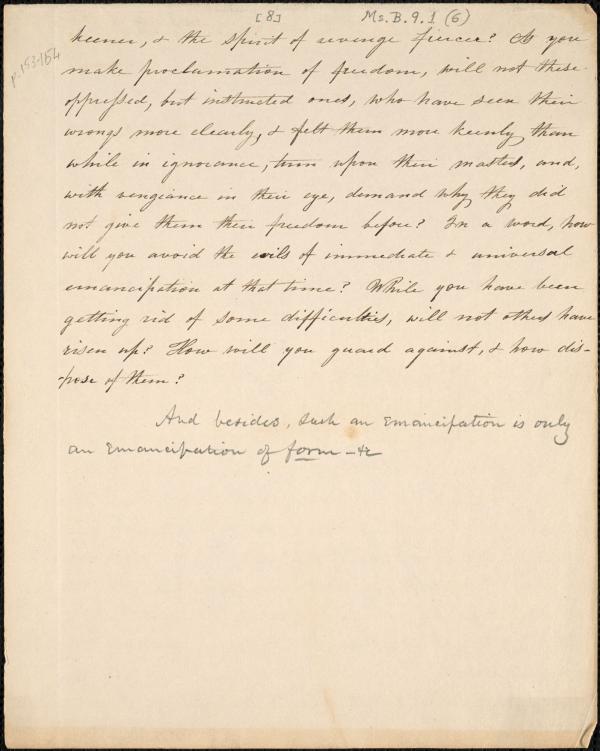 [8]
Ms. B. 9. 1 (6)
p. 153-154
keener, & the spirit of revenge fiercer? As you
make proclamation of freedom, will not these
oppressed, but instructed ones, who have seen their
wrongs more clearly, & felt them more keenly than
while in ignorance, turn upon their masters, and,
with vengiance in their eye, demand why they did
not give them their freedom before? In a word, how
will you avoid the evils of immediate & universal
emancipation at that time? While you have been
getting rid of some difficulties, will not others have
risen up? How will you guard against, & how dis-
-pose of them?
And besides, such an Emancipation is only
an Emancipation of form - &c